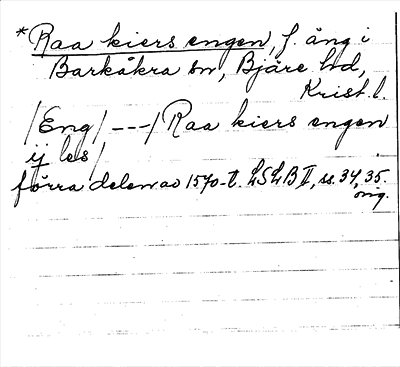 *Raa kiers engen, f. äng i
Barkåkra sn, Bjäre hd,
Krist. l.
/Eng/ ---/ Raa kiers engen
ij les/
förra delen av 1570-t. LSLB II, ss. 34, 35.
orig.